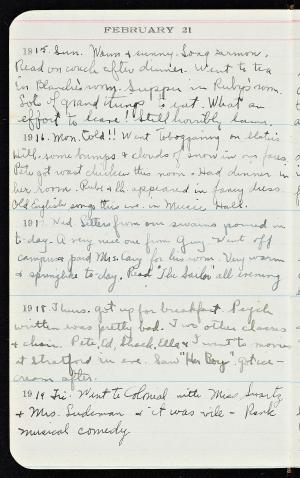 FEBRUARY 21
1915. Sun. Warm & sunny. Long sermon.
Read on couch after dinner. Went to tea
in Blanche's room. Supper in Ruby's room.
Lots of grand things to eat. What an
effort to leave!! Still horribly lame.
1916. Mon. Cold!! Went tobogganing on
Hill. Some bumps & clouds of snow in our faces.
Pete got roast chicken this noon & had dinner in
her room. Rub & Ill. appeared in fancy dress.
Old English songs this eve. in Music Hall.
1917. Wed. Letters from our swains poured in
to-day. A very nice one from Gay. Went off
campus & paid Mrs. Cary for his room. Very warm
& springlike to-day. Read "The Sailor" all evening
1918 Thurs. Got up for breakfast. Psych
written was pretty bad. Two other classes
& choir. Pete, Ed, Shack, Ella & I went to movies
at Stratford in eve. Saw "Her Boy". Got ice-
cream after.
1919 Fri. Went to Colonial with Miss Swartz
& Mrs. Sudeman & it was vile - Rank
musical comedy